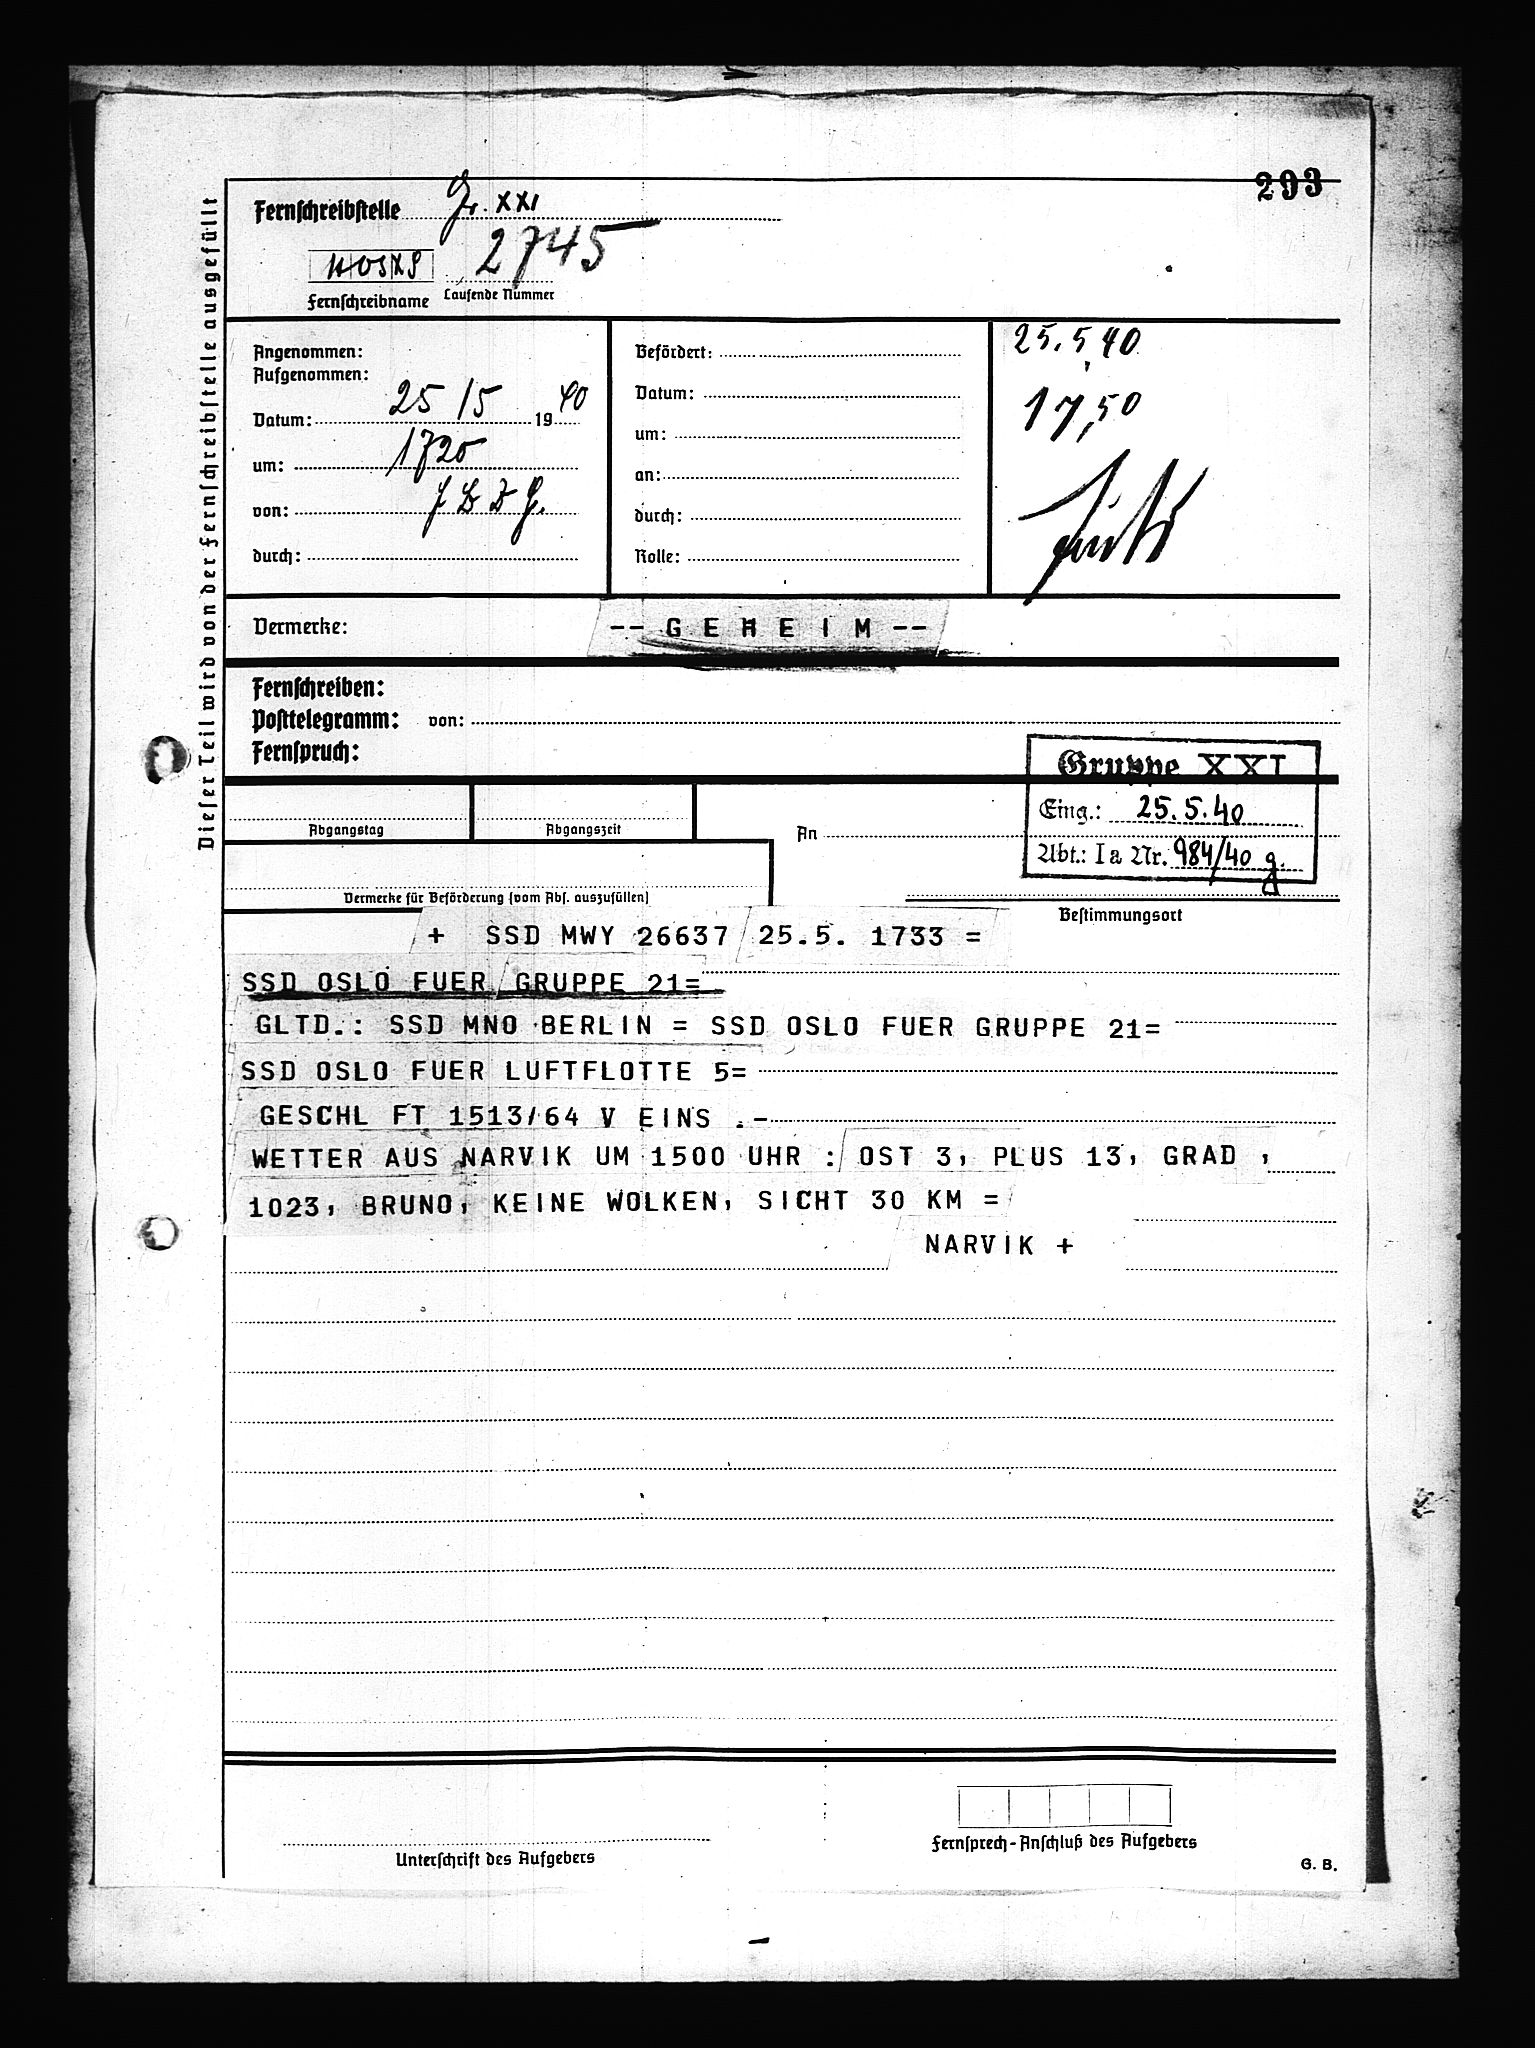 293
Fernschreibstelle Gr. XXI
HOSXS 2745
Fernschreibname Laufende Nummer
Dieser Teil wird von der Fernschreibstelle ausgefüllt
Angenommen:
Aufgenommen:
Datum: 25/5 1940
um: 1720
von:
durch:
Befördert:
Datum:
um:
an:
durch:
Rolle:
25.5.40
17,50
Vermerke: -- G E H E I M --
Fernschreiben:
Posttelegramm: von:
Fernspruch:
Gruppe XXI
Eing.: 25.5.40
Abt.: Ia Nr. 984/40 g.
Abgangstag Abgangszeit An
Vermerke für Beförderung (vom Abs. auszufüllen)
Bestimmungsort
+ SSD MWY 26637 25.5. 1733 =
SSD OSLO FUER GRUPPE 21=
GLTD.: SSD MNO BERLIN = SSD OSLO FUER GRUPPE 21=
SSD OSLO FUER LUFTFLOTTE 5=
GESCHL FT 1513/64 V EINS .-
WETTER AUS NARVIK UM 1500 UHR : OST 3, PLUS 13, GRAD ,
1023, BRUNO, KEINE WOLKEN, SICHT 30 KM =
NARVIK +
Unterschrift des Aufgebers
Fernsprech-Anschluß des Aufgebers
G. B.